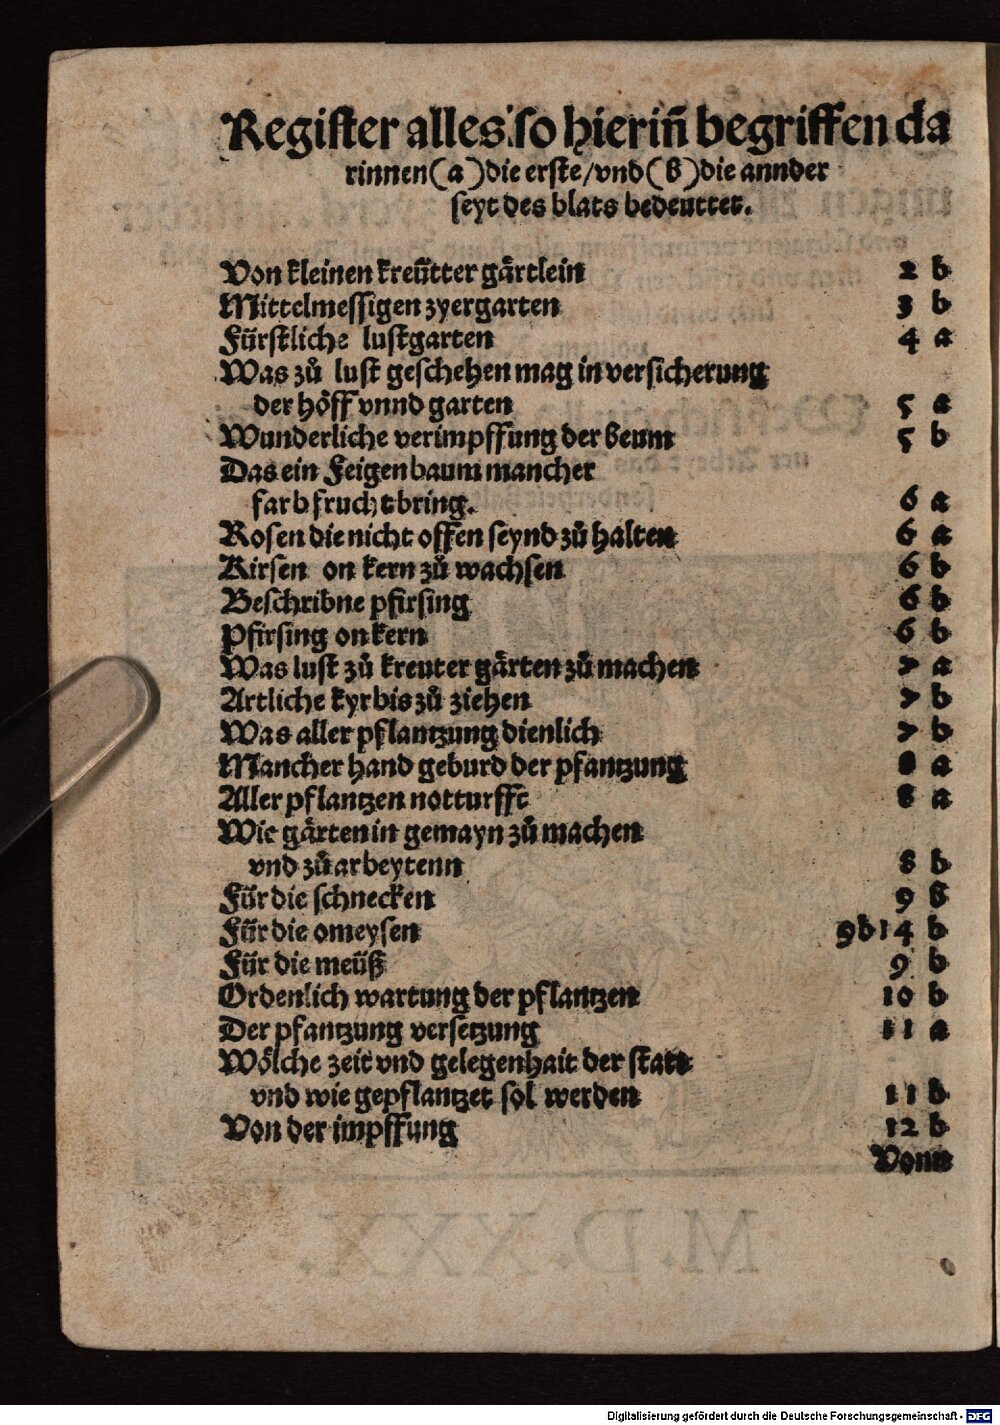 Register alles so hierin̄ begriffen da
rinnen (a) die erste / vnd (b) die annder
seyt des blats bedeuttet.
Von kleinen kreütter gärtlein 2 b
Mittelmessigen zyergarten 3 b
Fürstliche lustgarten 4 a
Was zů lust geschehen mag in versicherung
der höff vnnd garten 5 a
Wunderliche verimpffung der beum 5 b
Das ein Feigenbaum mancher
farb frucht bring. 6 a
Rosen die nicht offen seynd zů halten 6 a
Kirsen on kern zů wachsen 6 b
Beschribne pfirsing 6 b
Pfirsing on kern 6 b
Was lust zů kreuter gärten zů machen 7 a
Artliche kyrbis zů ziehen 7 b
Was aller pflantzung dienlich 7 b
Mancher hand geburd der pfantzung 8 a
Aller pflantzen notturfft 8 a
Wie gärten in gemayn zů machen
vnd zů arbeytenn 8 b
Für die schnecken 9 b
Für die omeysen 9 b 14 b
Für die meüß 9 b
Ordenlich wartung der pflantzen 10 b
Der pfantzung versetzung 11 a
Wölche zeit vnd gelegenhait der statt
vnd wie gepflantzet sol werden 11 b
Von der impffung 12 b
Vonn
Digitalisierung gefördert durch die Deutsche Forschungsgemeinschaft - DFG